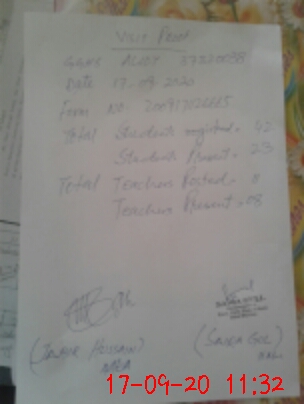 Visit Proof
GGHS ALIOT 37120038
Date 17-09-2020
Form NO:
Total Students registered = 42
Students Present = 23
Total Teachers Posted = 8
Teachers Present = 08
(Zaheer Hussain) (Saira Gul)
MEA
17-09-20 11:32